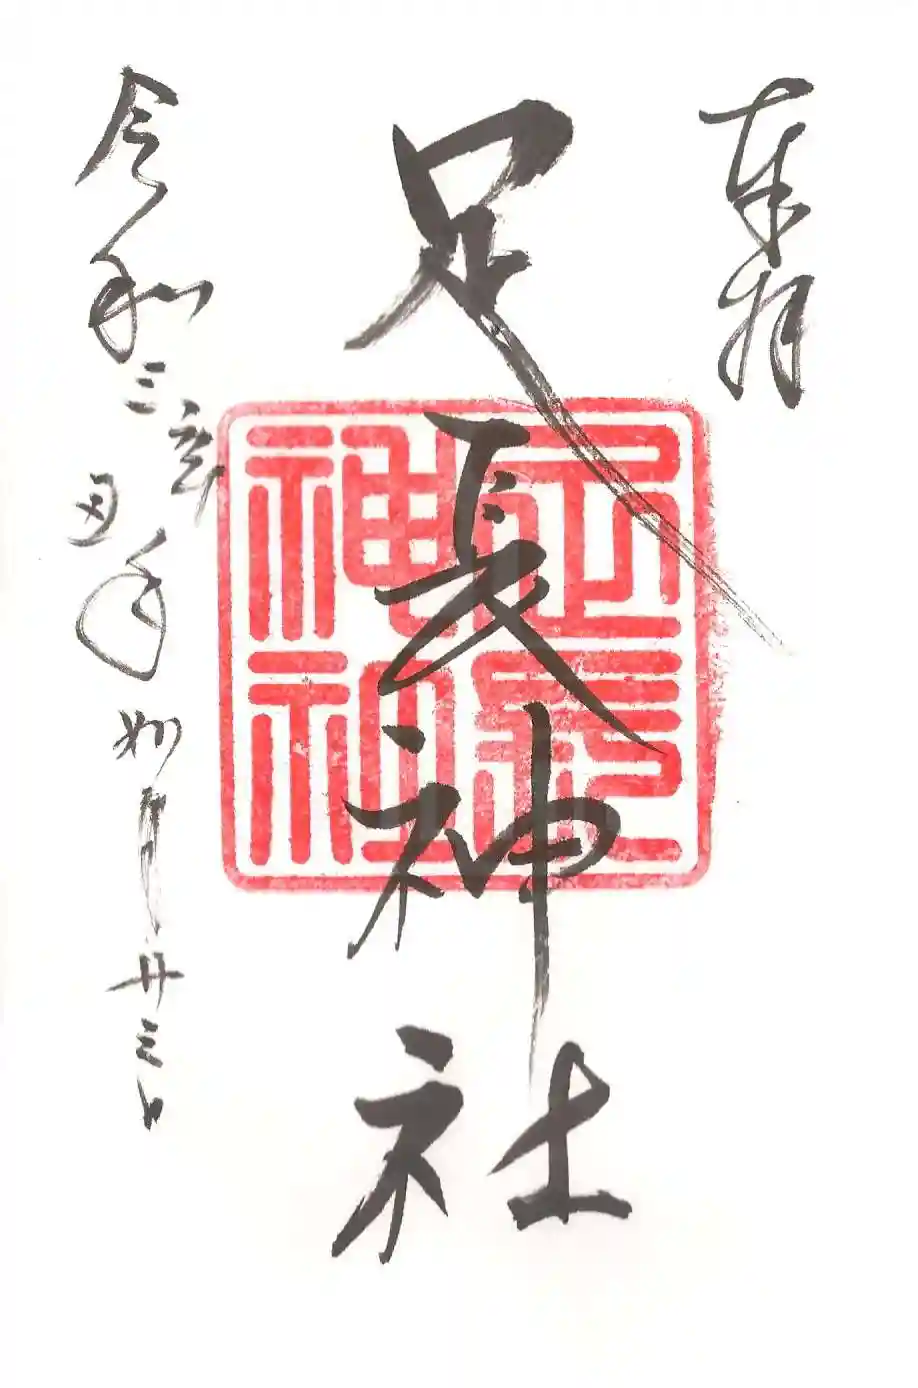 奉拝
足長神社
足長神社
令和三辛丑年如月廿三日